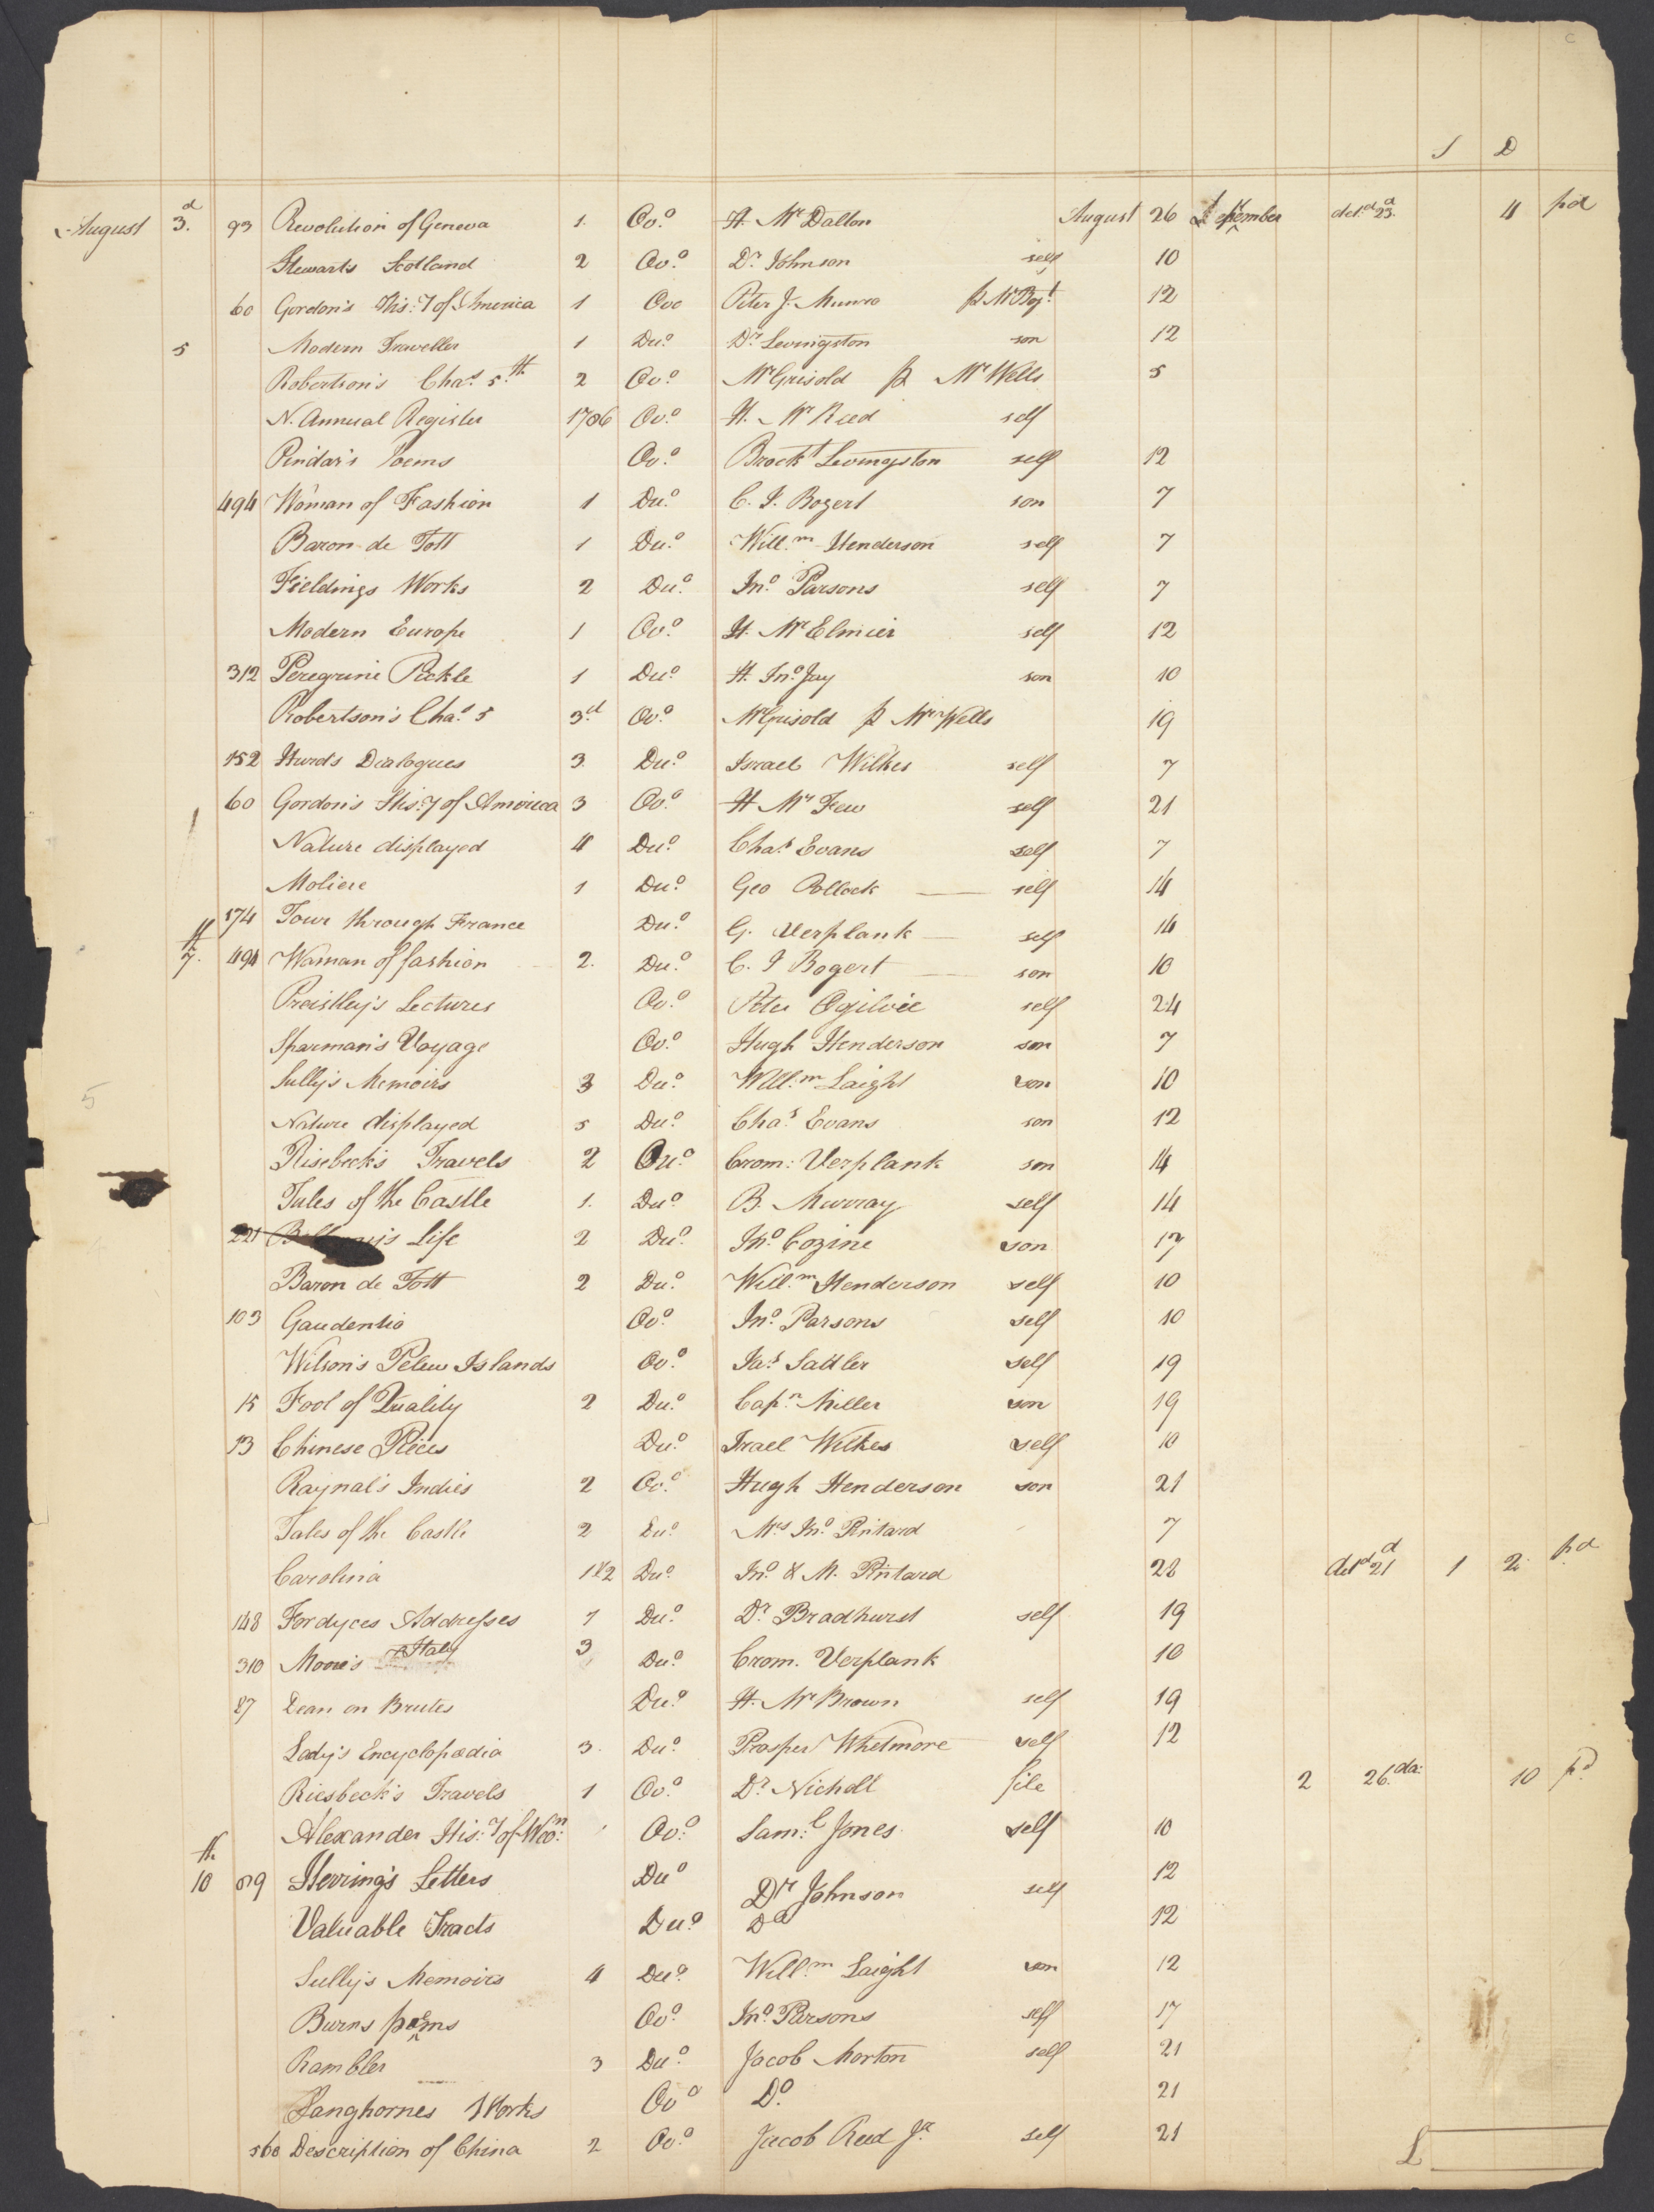 C
S D
August 3.d 93 Revolution of Geneva 1. Ov.o H. Mr Dalton August 26 September det.d 23.d 4 pd
Stewarts Scotland 2 Ov.o Dr. Johnson self 10
60 Gordon's His:y of America 1 Ovo Peter J. Munro 12
5 Modern Traveller 1 Du.o Dr. Levingston son 12
Robertson's Cha.s 5.th 2 Ov.o Mr Grisold p Mr Wells 5
N. Annual Register 1786 Ov.o H. Mr Reed self
Pindar's Poems Ov.o Brockt Levingston self 12
494 Woman of Fashion 1 Du.o C. I. Bogert son 7
Baron de Tott 1 Du.o Will.m Henderson self 7
Fieldings Works 2 Du.o Jn.o Parsons self 7
Modern Europe 1 Ov.o H. Mr Elmier self 12
312 Peregrine Pickle 1 Du.o H. Jn.o Jay son 10
Robertson's Cha.s 5 3.d Ov.o Mr Grisold p Mr Wells 19
152 Hurd's Dialogues 3. Du.o Israel Wilkes self 7
60 Gordon's His:y of America 3 Ov.o H Mr Few self 21
Nature displayed 4 Du.o Cha.s Evans self 7
Moliere 1 Du.o Geo Pollock self 14
174 Tour through France Du.o G. Verplank self 14
7.th 494 Waman of fashion 2. Du.o C. I Bogert son 10
Preistley's Lectures Ov.o Peter Ogilvie self 24
Sparman's Voyage Ov.o Hugh Henderson son 7
Sully's Memoirs 3 Du.o Will.m Laight son 10
Nature displayed 5 Du.o Cha.s Evans son 12
Risebeck's Travels 2 Ov.o Crom: Verplank son 14
Tales of the Castle 1. Du.o B. Murray self 14
221 Life 2 Du.o Jno. Cozine son 17
Baron de Tott 2 Du.o Will.m Henderson self 10
103 Gaudentio Ov.o Jn.o Parsons self 10
Wilson's Pelew Islands Ov.o Ja.s Sadler self 19
15 Fool of Quality 2 Du.o Cap.n Miller son 19
13 Chinese Pieces Du.o Israel Wilkes self 10
Raynal's Indies 2 Ov.o Hugh Henderson son 21
Tales of the Castle 2 Du.o Mrs Jn.o Pintard 7
Carolina 1&2 Du.o Jn.o & M. Pintard 28 detd 21d 1 2 pd
148 Fordyces Addresses 1 Du.o Dr. Bradhurst self 19
310 Moore's Italy 3 Du.o Crom. Verplank 10
87 Dean on Brutes Du.o H. Mr Brown self 19
Lady's Encyclopædia 3. Du.o Prosper Whetmore self 12
Riesbeck's Travels 1 Ov.o Dr. Nicholl file 2 26.da: 10 pd
Alexander His:y of Wom:n 1 Ov.o Sam:l Jones self 10
10th 89 Herring's Letters Duo Dr Johnson self 12
Valuable Tracts Du.o Do 12
Sully's Memoirs 4 Du.o Will.m Laight son 12
Burns poems Ov.o Jn.o Parsons self 17
Rambler 3 Du.o Jacob Morton self 21
Langhornes Works Ovo Do. 21
560 Description of China 2 Ov.o Jacob Reed Jr self 21
£
5